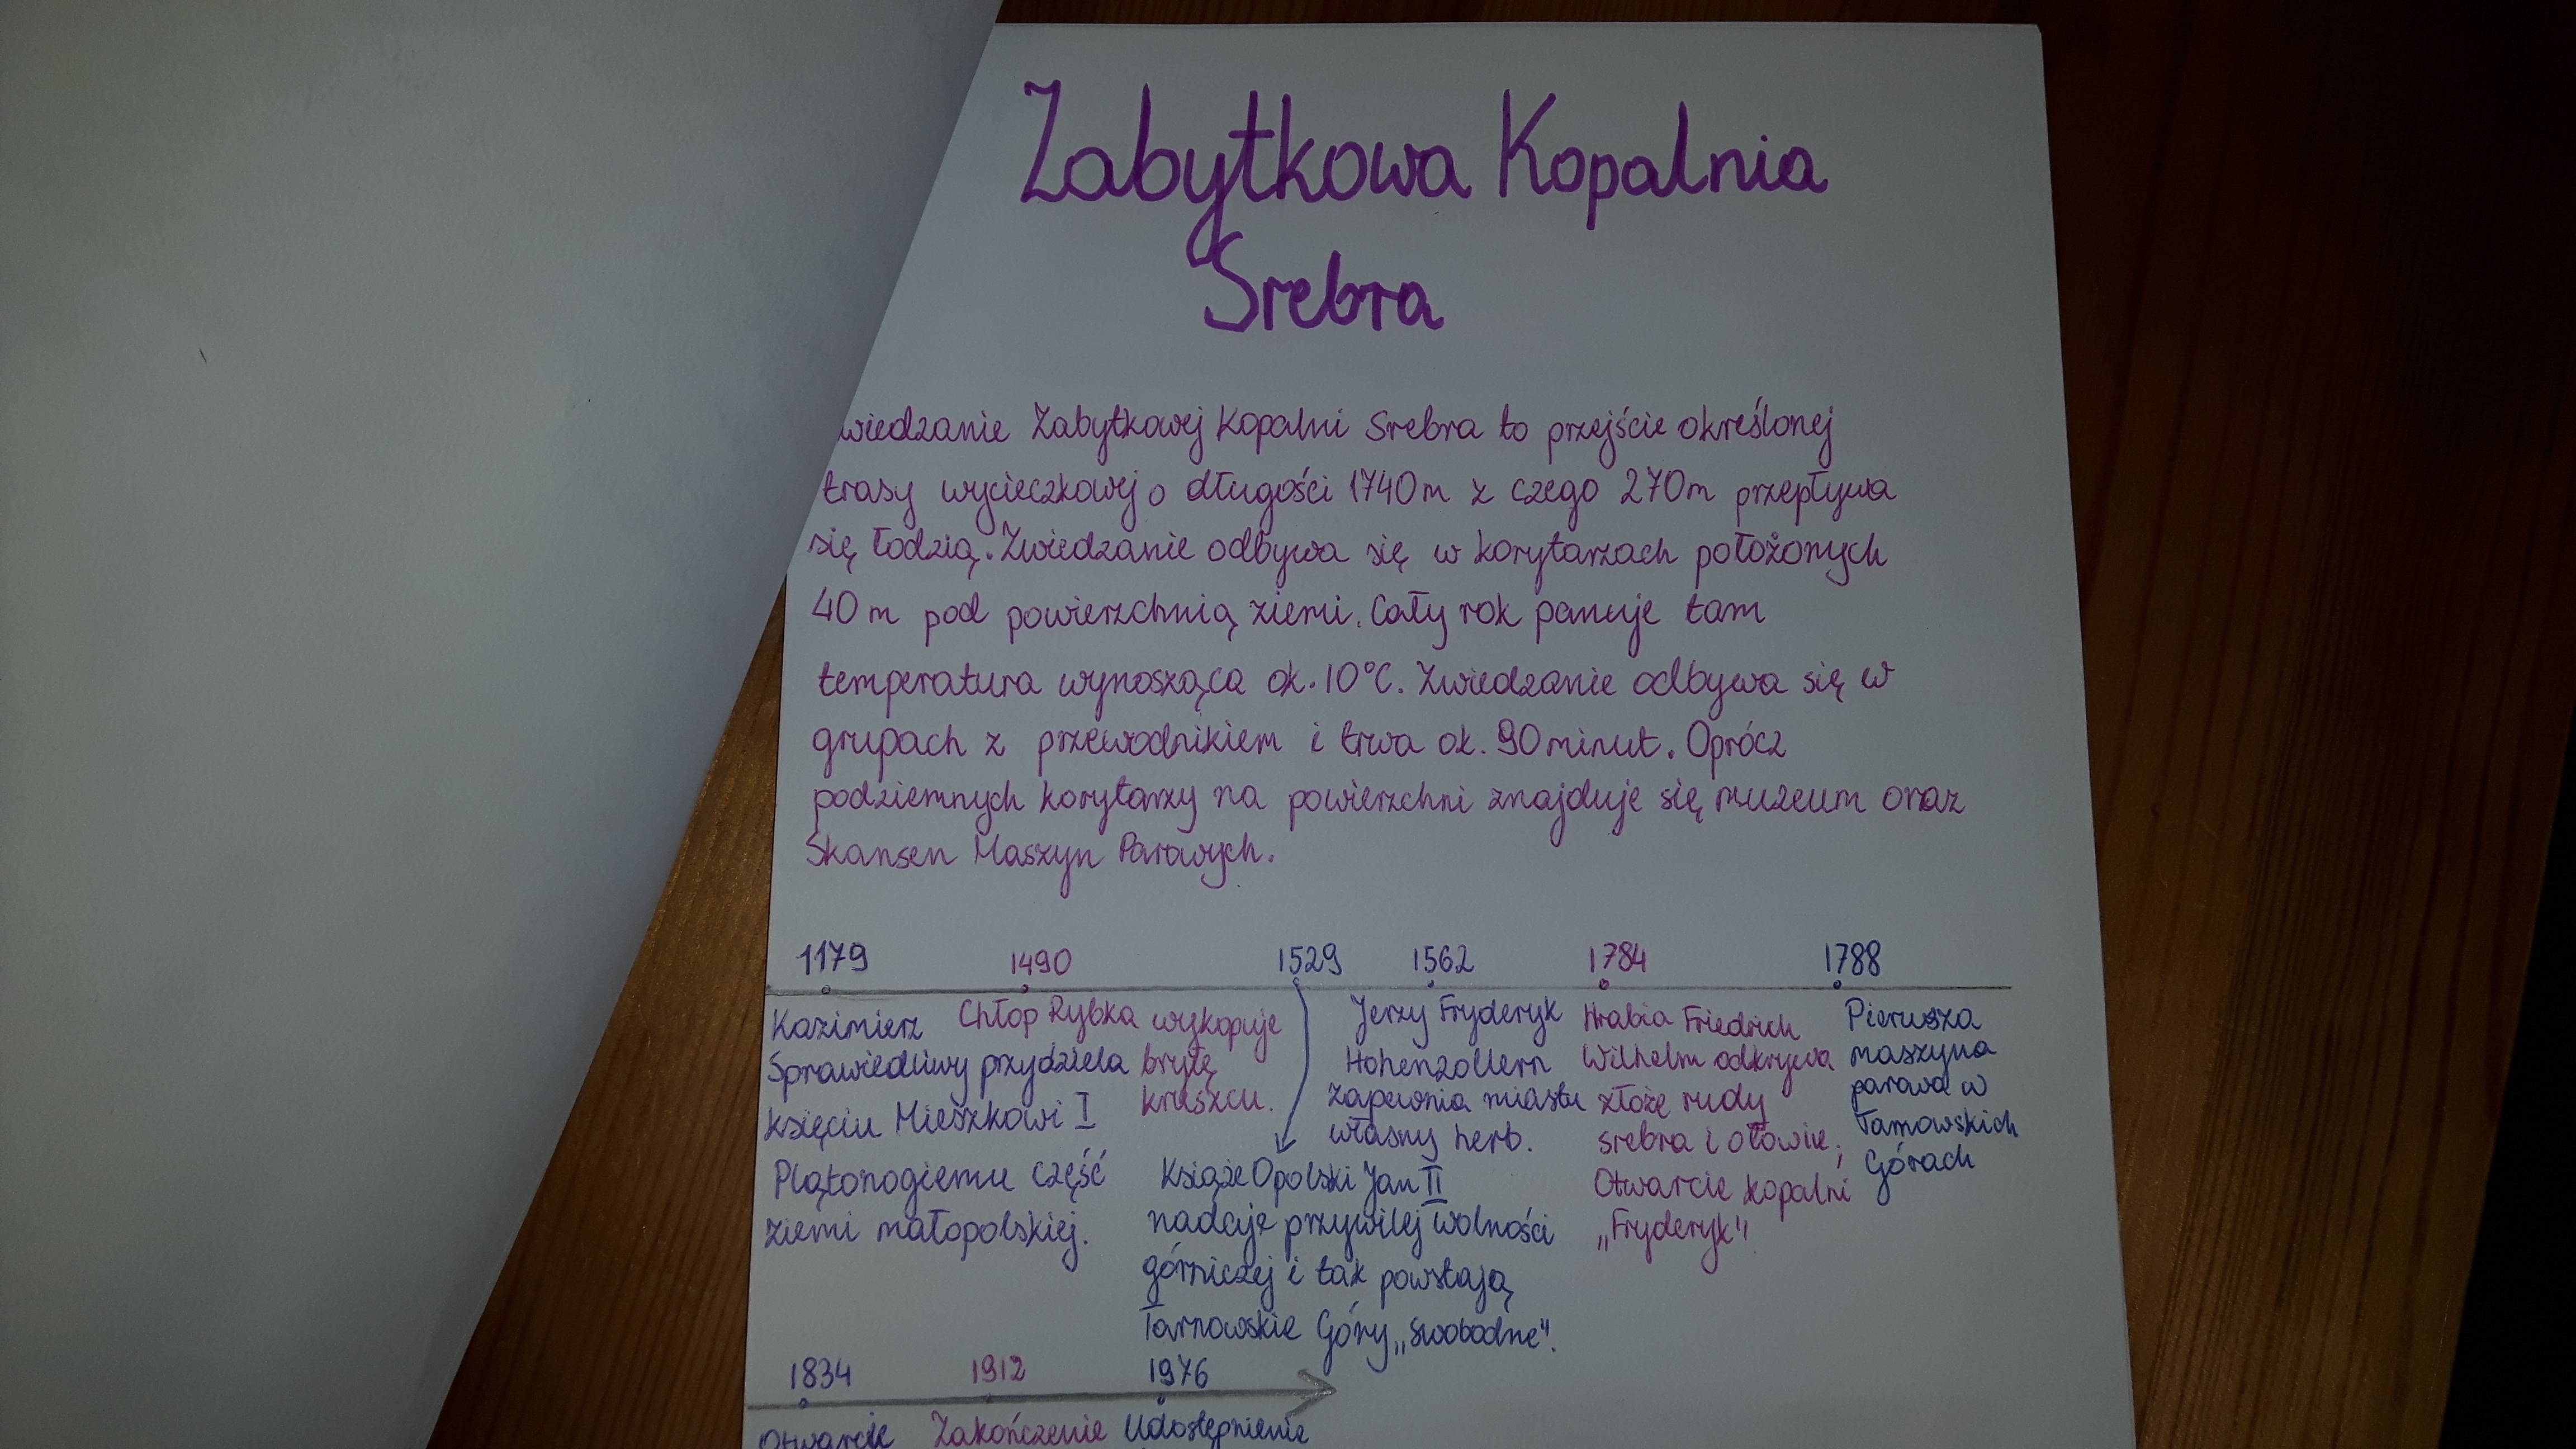 Zabytkowa Kopalnia
Srebra
wiedzanie Zabytkowej Kopalni Srebra to przejście określonej
trasy wycieczkowej o długości 1740m z czego 270m przepływa
się łodzią. Zwiedzanie odbywa się w korytarzach położonych
40m pod powierzchnią ziemi. Cały rok panuje tam
temperatura wynosząca ok. 10°C. Zwiedzanie odbywa się w
grupach z przewodnikiem i trwa ok. 90minut. Oprócz
podziemnych korytarzy na powierzchni znajduje się muzeum oraz
Skansen Maszyn Parowych.
1179
Kazimierz
Sprawiedliwy przydziela
księciu Mieszkowi I
Plątonogiemu część
ziemi małopolskiej.
1490
Chłop Rybka wykopuje
bryłę
kruszcu.
1529
Książe Opolski Jan II
nadaje przywilej wolności
górniczej i tak powstają
Tarnowskie Góry „swobodne".
1562
Jerzy Fryderyk
Hohenzollern
zapewnia miastu
własny herb.
1784
Hrabia Friedrich
Wilhelm odkrywa
złożę rudy
srebra i ołowie;
Otwarcie kopalni
„Fryderyk"
1788
Pierwsza
maszyna
parowa w
Tarnowskich
Górach
1834
Otwarcie
1912
Zakończenie
1976
Udostępnienie